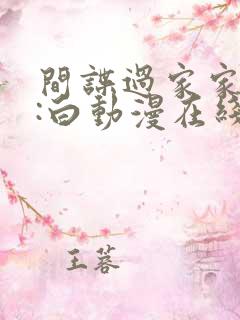 間諜過家家
:白動漫在線
王蓉